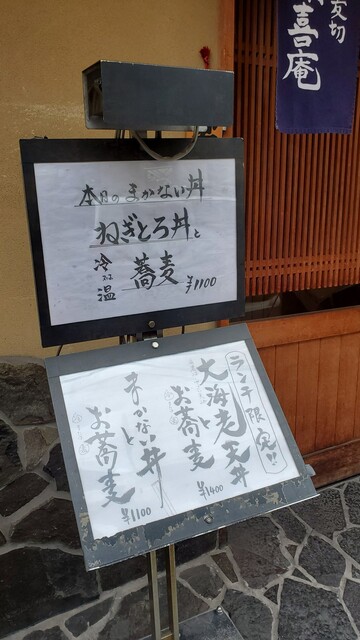 友切
喜庵
本日のまかない丼
ねぎとろ丼と
冷又は温
蕎麦 ¥1100
ランチ限定!!
大海老天丼
と
お蕎麦
¥1400
まかない丼
と
お蕎麦
¥1100